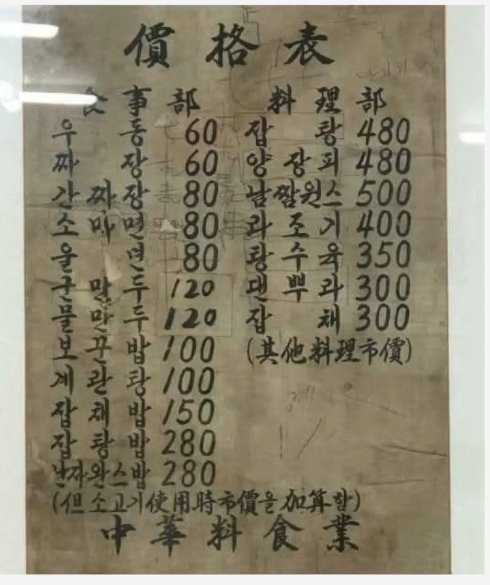 價格表
食事部
우동 60
짜장 60
간짜장 80
소마면 80
울면 80
군만두 120
물만두 120
보꾼밥 100
계란탕 100
잡채밥 150
잡탕밥 280
난자완스밥 280
料理部
잡탕 480
양장피 480
남짬원스 500
라조기 400
탕수육 350
댄뿌라 300
잡채 300
(其他料理市價)
(但소고기使用時市價을加算함)
中華料食業